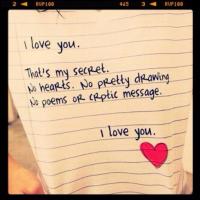 2 RVP100 425 3 RVP100
I love you.
That's my secret.
No hearts. No pretty drawing
No poems or crptic message.
I love you.